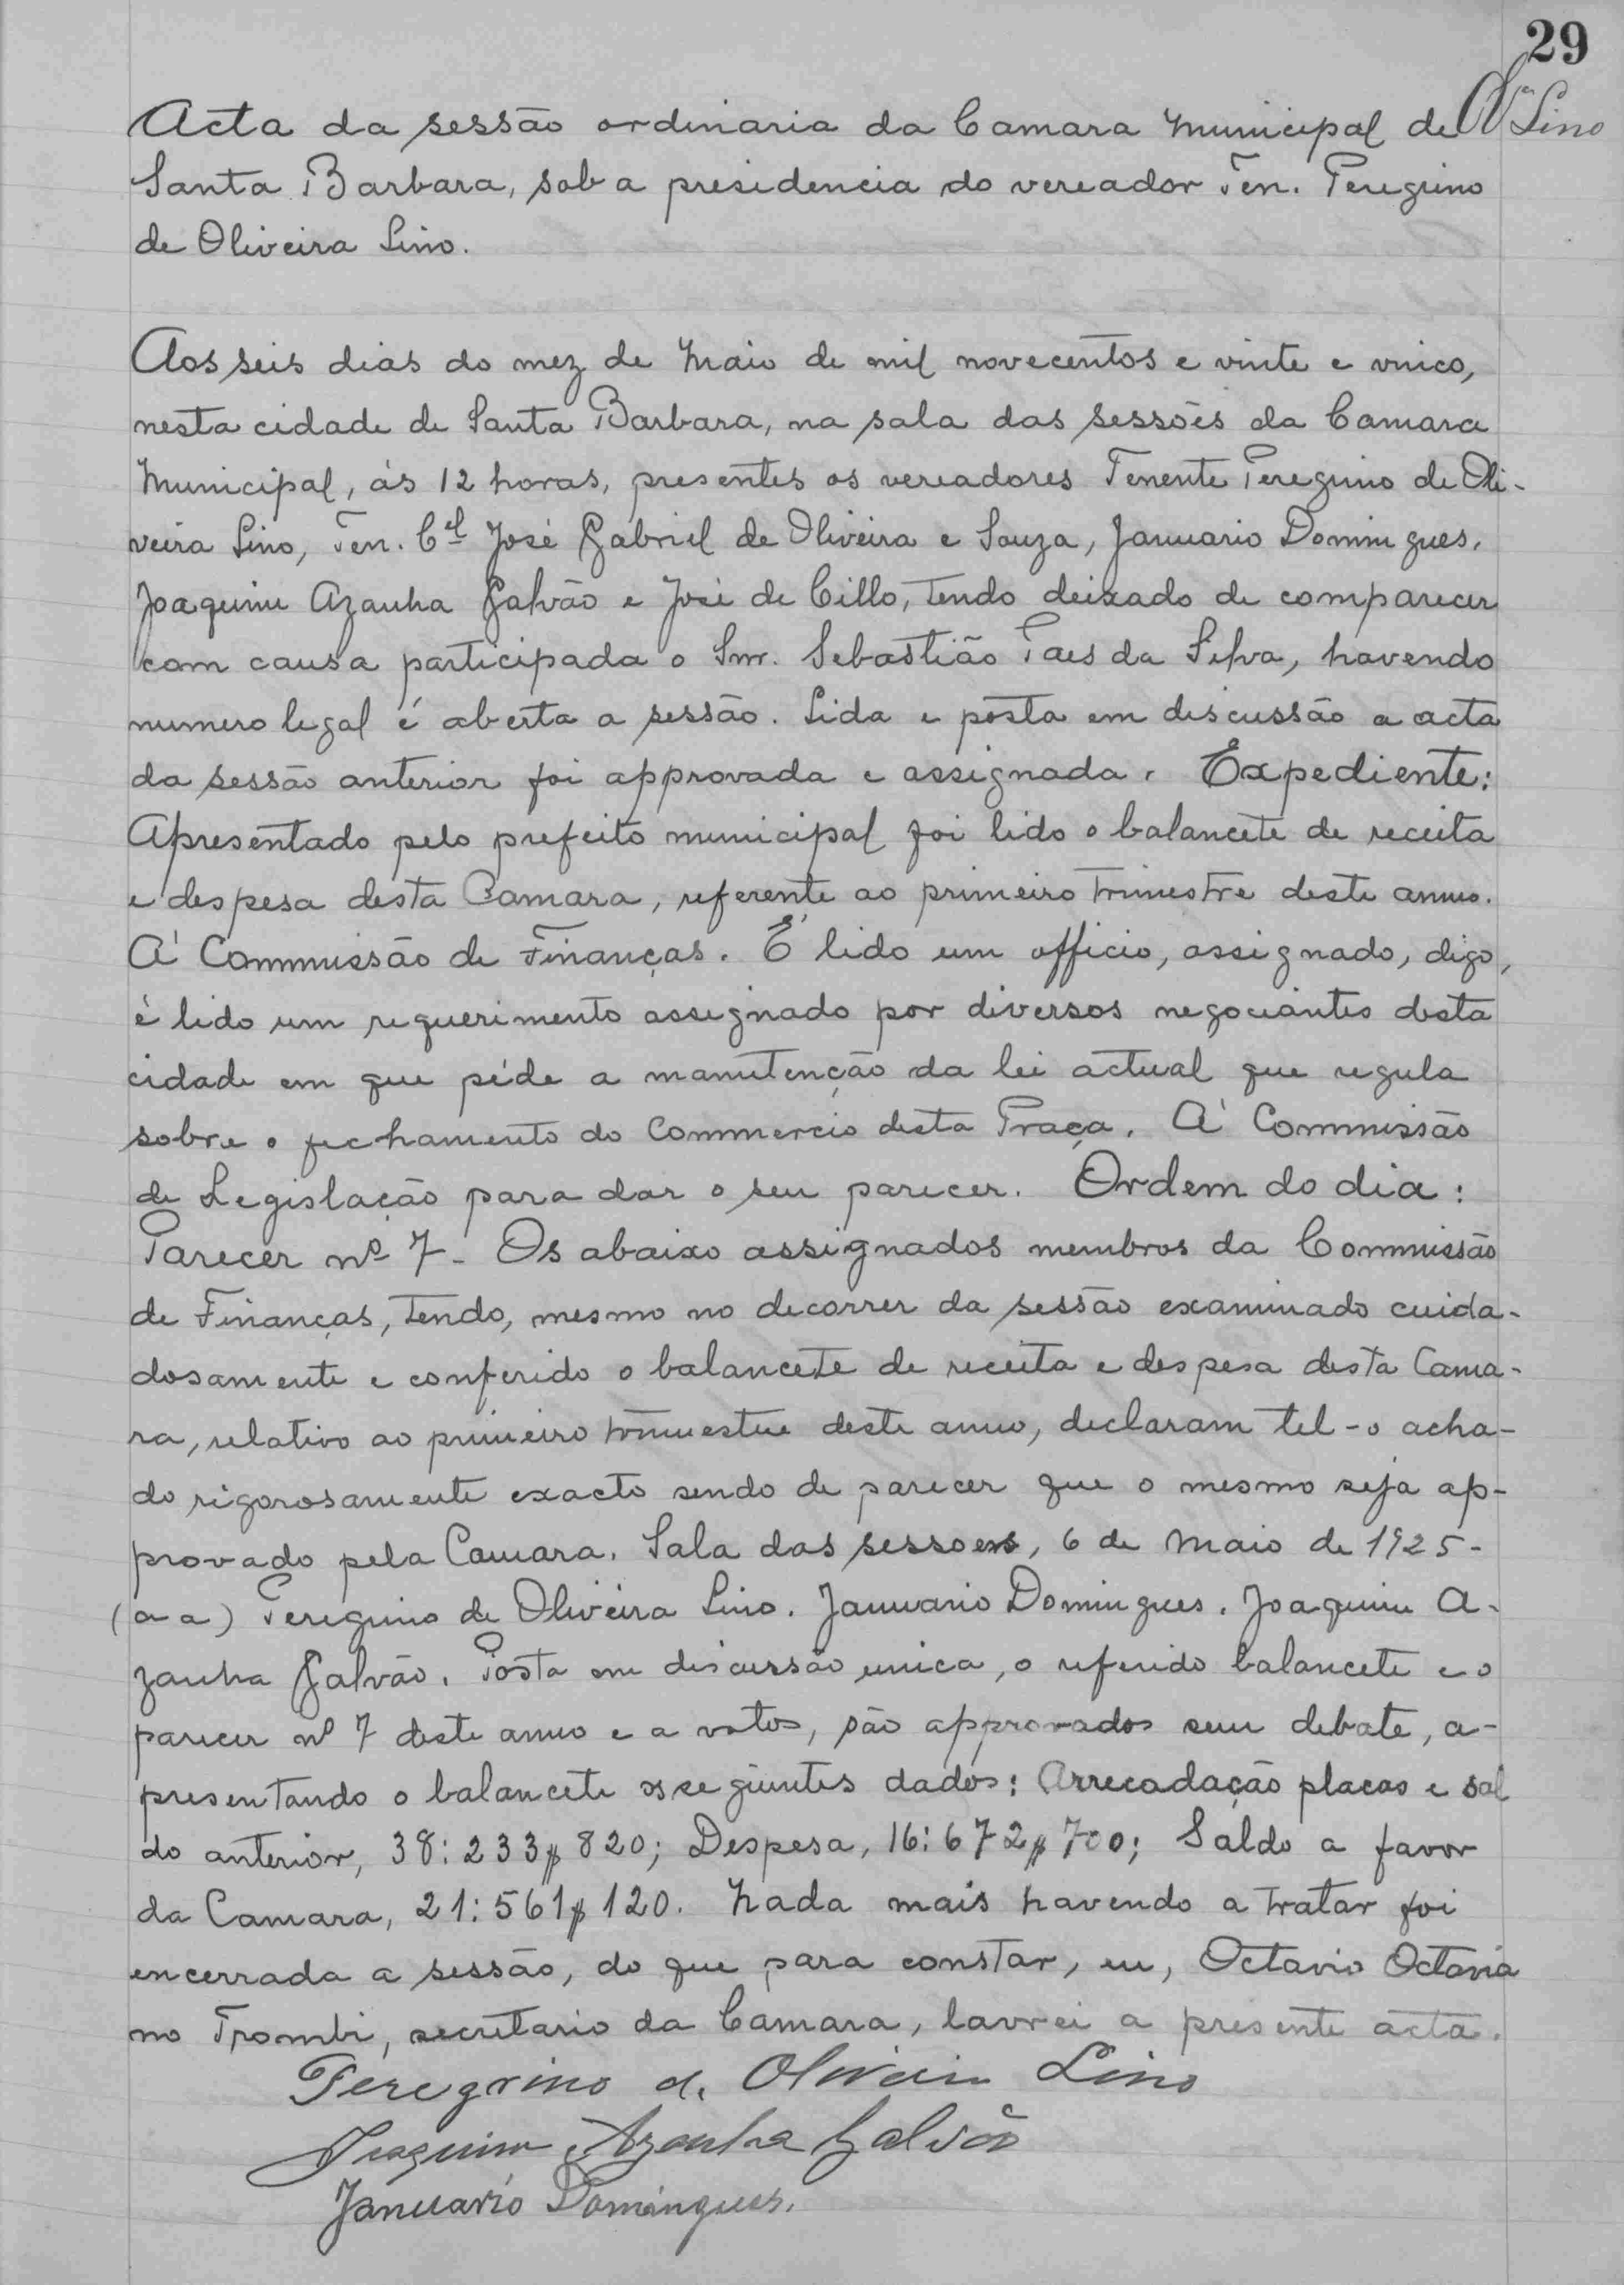 29
Lino
Acta da sessão ordinaria da Camara Municipal de
Santa Barbara, sob a presidencia do vereador Ten. Peregrino
de Oliveira Lino.
Aos seis dias do mez de Maio de mil novecentos e vinte e cinco,
nesta cidade de Santa Barbara, na sala das sessões da Camara
Municipal, ás 12 horas, presentes os vereadores Tenente Peregrino de Oli-
veira Lino, Ten. Cel José Gabriel de Oliveira e Souza, Januario Domingues,
Joaquim Azanha Galvão e José de Cillo, tendo deixado de comparecer
com causa participada o Snr. Sebastião Paes da Silva, havendo
numero legal é aberta a sessão. Lida e posta em discussão a acta
da sessão anterior foi approvada e assignada. Expediente:
Apresentado pelo prefeito municipal foi lido o balancete de receita
e despesa desta Camara, referente ao primeiro trimestre deste anno.
Á Commissão de Finanças. É lido um officio, assignado, digo,
é lido um requerimento assignado por diversos negociantes desta
cidade em que péde a manutenção da lei actual que regula
sobre o fechamento do Commercio desta Praça. Á Commissão
de Legislação para dar o seu parecer. Ordem do dia:
Parecer nº 7 - Os abaixo assignados membros da Commissão
de Finanças, tendo, mesmo no decorrer da sessão examinado cuida-
dosamente e conferido o balancete de receita e despesa desta Cama-
ra, relativo ao primeiro trimestre deste anno, declaram tel-o acha-
do rigorosamente exacto sendo de parecer que o mesmo seja ap-
provado pela Camara. Sala das sessoes, 6 de Maio de 1925-
(a a) Peregrino de Oliveira Lino. Januario Domingues. Joaquim A-
zanha Galvão. Posta em discussão unica, o referido balancete e o
parecer nº 7 deste anno e a votos, são approvados sem debate, a-
presentando o balancete os seguintes dados: Arrecadação placas e sal
do anterior, 38:233$820; Despesa, 16:672$700; Saldo a favor
da Camara, 21:561$120. Nada mais havendo a tratar foi
encerrada a sessão, do que para constar, eu, Octavio Octavia
no Trombi, secretario da Camara, lavrei a presente acta.
Peregrino de Oliveira Lino
Joaquim Azanha Galvão
Januario Domingues.